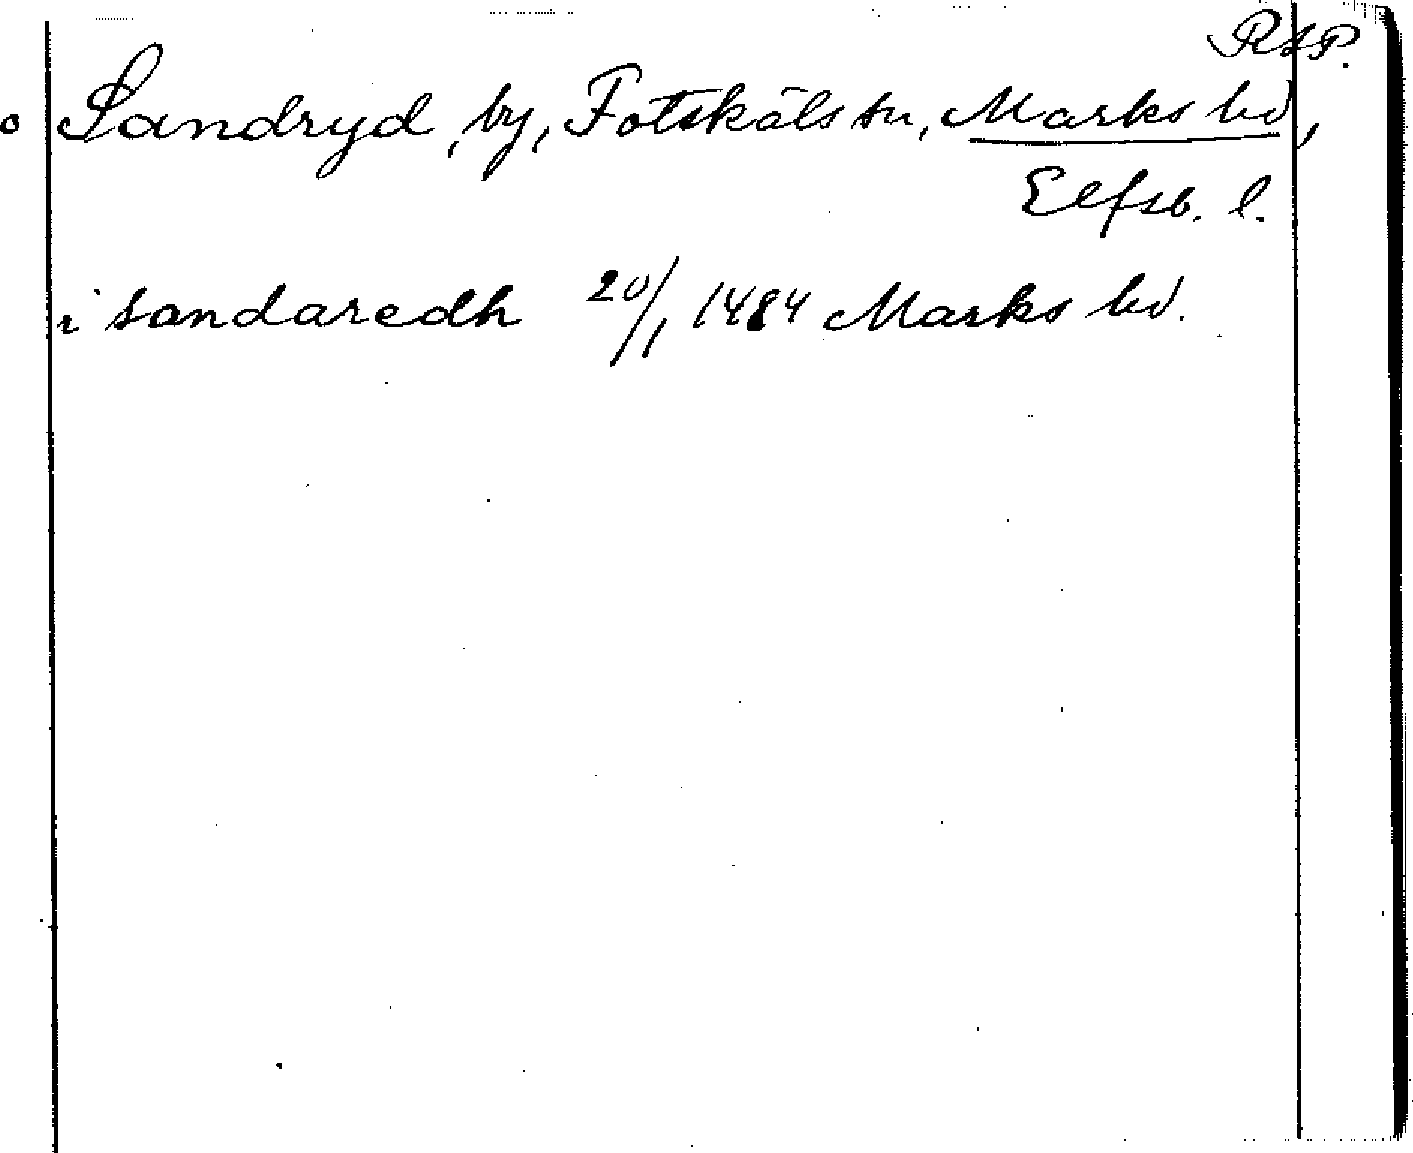 RAP.
o Sandryd, by, Fotskäls sn, Marks hd,
Elfsb. l.
i sandaredh 20/1 1484 Marks hd.